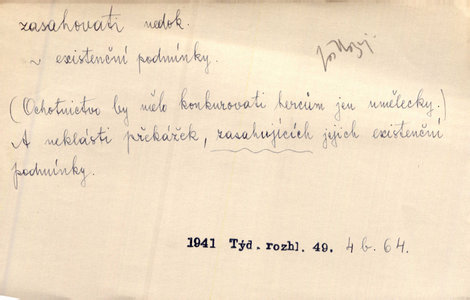 zasahovati nedok.
~ existenční podmínky.
(Ochotnictvo by mělo konkurovati hercům jen umělecky.)
A neklásti překážek, zasahujících jejich existenční
podmínky.
1941 Týd. rozhl. 49. 4 b. 64.